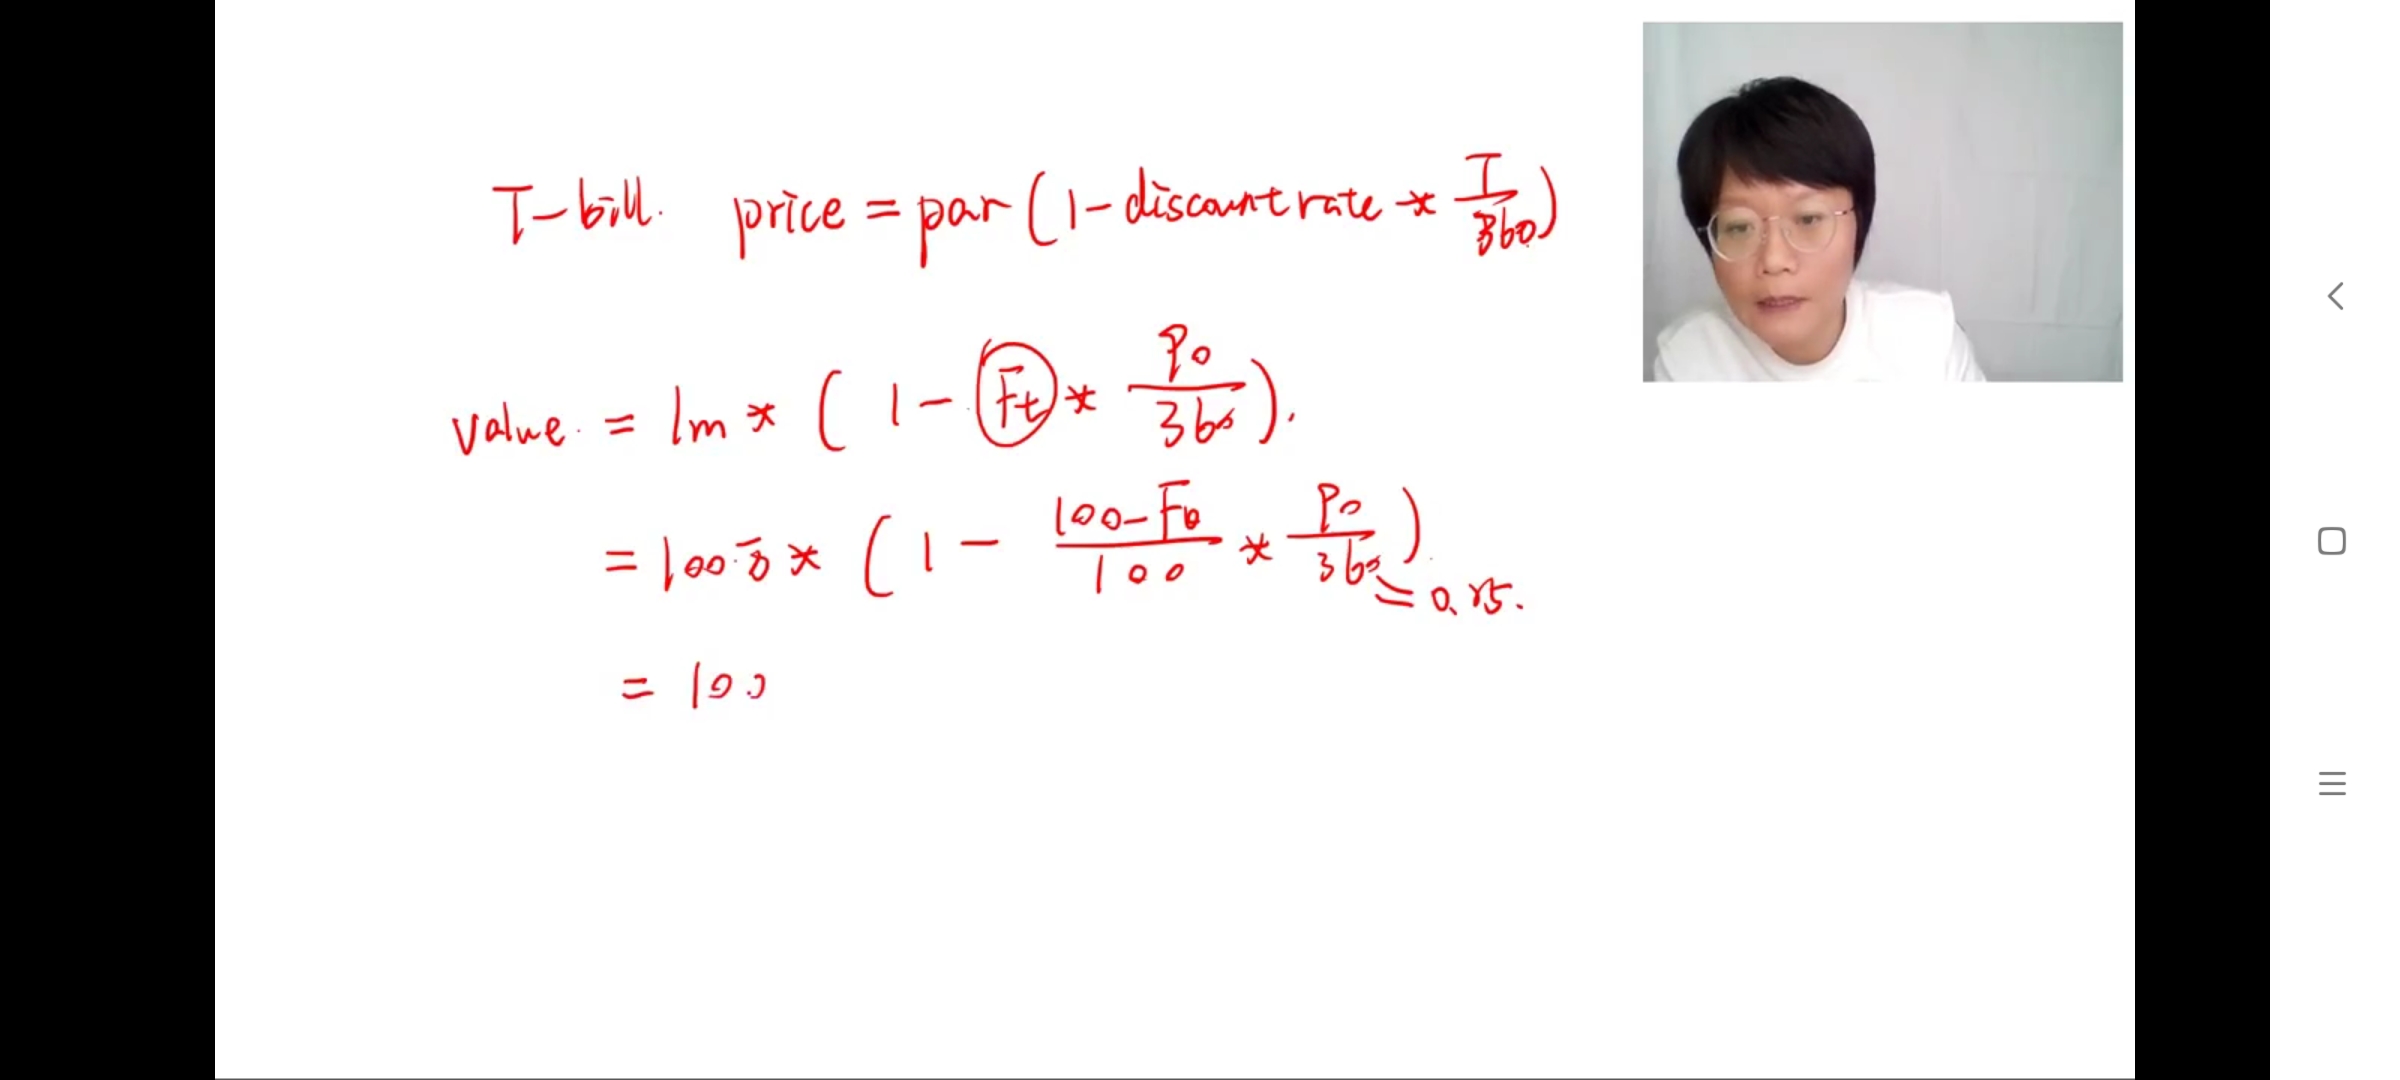 T-bill. price = par (1 - discount rate * T/360)
value. = 1m * ( 1 - Ft * 90/360 ).
= 100万 * ( 1 - 100-F0/100 * 90/360 )
= 0.25.
= 100